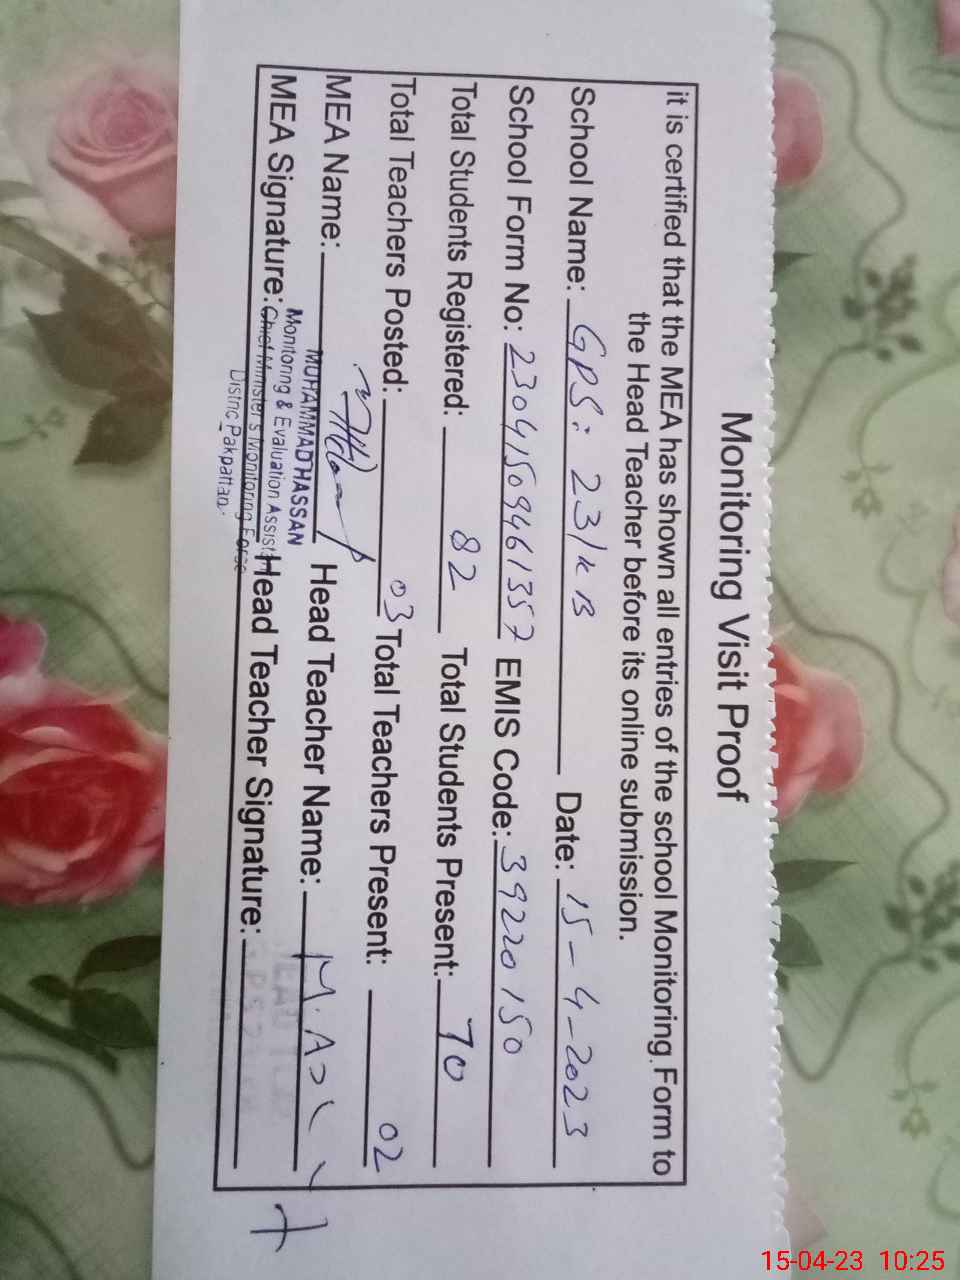 Monitoring Visit Proof
it is certified that the MEA has shown all entries of the school Monitoring Form to
the Head Teacher before its online submission.
School Name: GPS: 23/KB Date: 15-4-2023
School Form No: 23041509461357 EMIS Code: 39220150
Total Students Registered: 82 Total Students Present: 70
Total Teachers Posted: 03 Total Teachers Present: 02
MEA Name: Head Teacher Name: M.
MUHAMMAD HASSAN
Monitoring & Evaluation Assistant
MEA Signature: Head Teacher Signature:
Chief Minister's Monitoring Force
District Pakpattan.
15-04-23 10:25